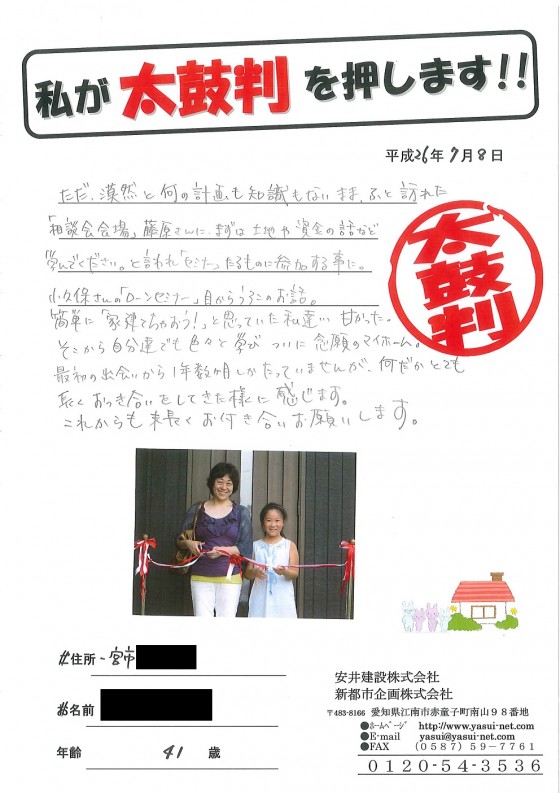 私が 太鼓判 を押します!!
平成26年7月8日
ただ、漠然と何の計画も知識もないまま、ふと訪れた
「相談会会場」藤原さんに、まずは土地や資金の話など
学んでください。と言われ「セミナー」たるものに参加する事に。
小久保さんの「ローンセミナー」目からうろこのお話。
簡単に「家建てちゃおう!」と思っていた私達… 甘かった。
そこから自分達でも色々と学び ついに念願のマイホーム。
最初の出会いから1年数ヶ月しかたっていませんが、何だかとても
長くおつき合いをしてきた様に感じます。
これからも末長くお付き合いお願いします。
太鼓判
住所 宮市
お名前
年齢 41 歳
安井建設株式会社
新都市企画株式会社
〒483-8166 愛知県江南市赤童子町南山98番地
●ホームページ http://www.yasui-net.com
●E-mail yasui@yasui-net.com
●FAX (0587)59-7761
0120-54-3536